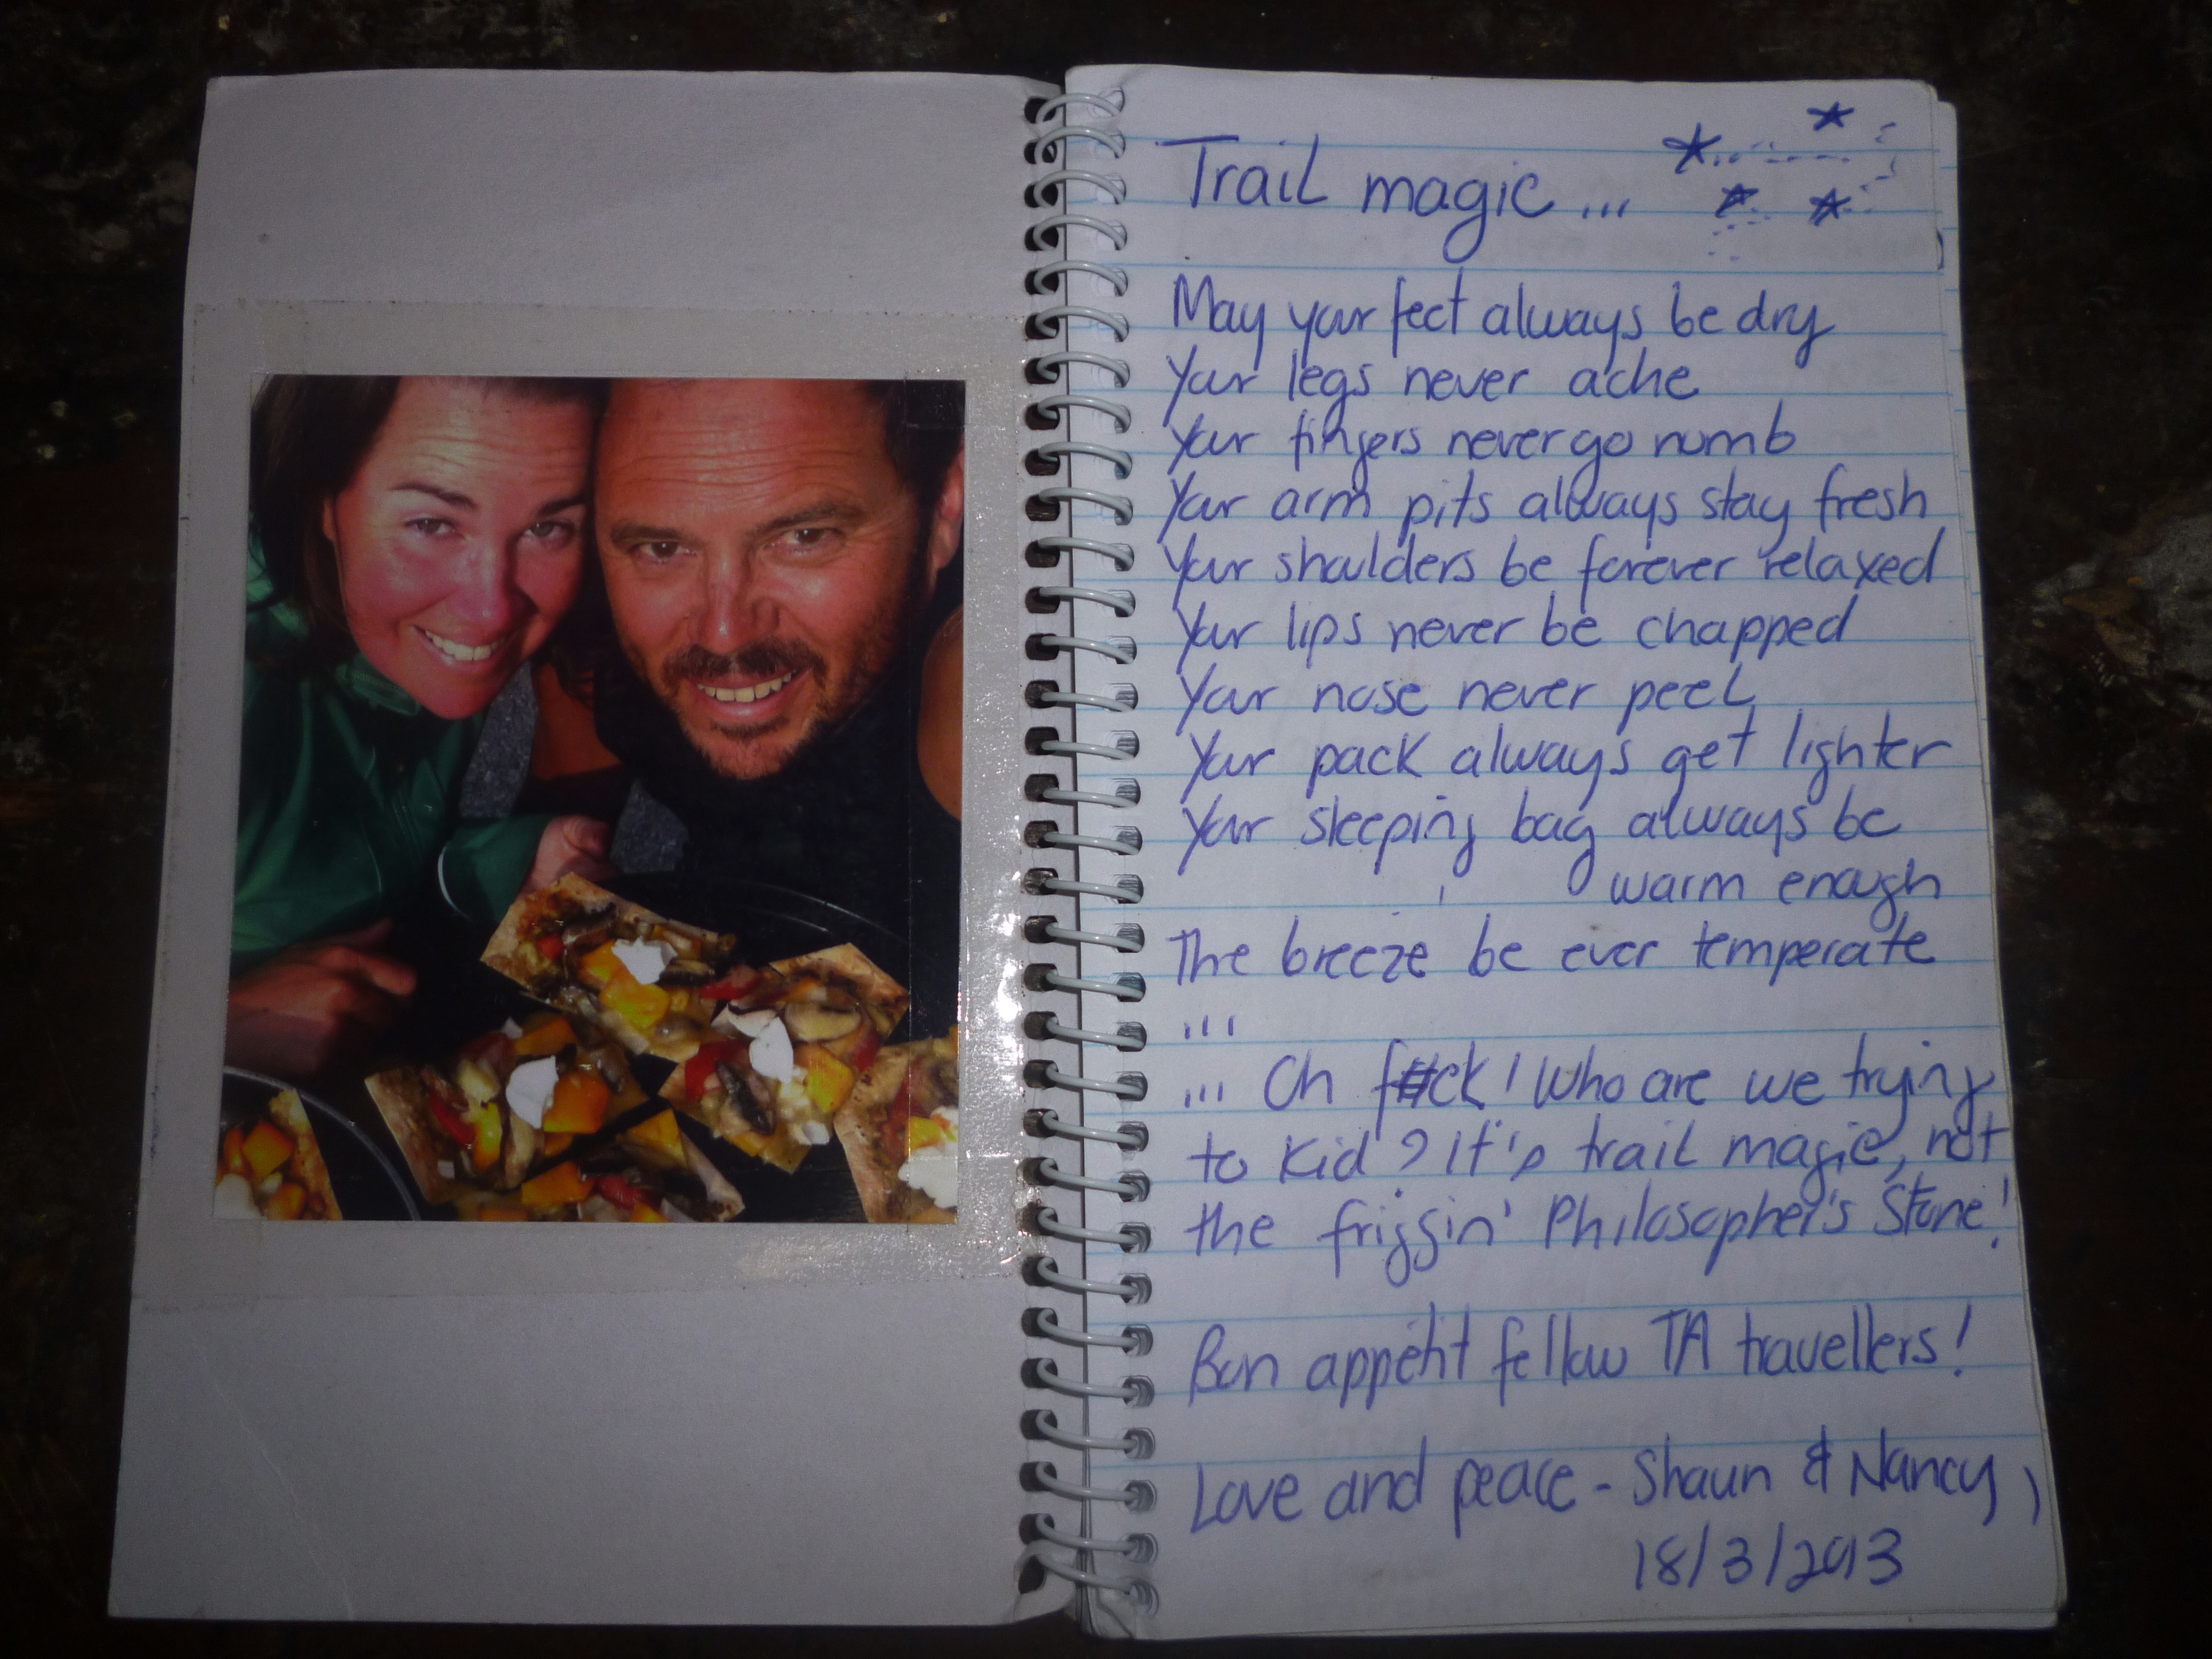 Trail magic ...
May your feet always be dry
Your legs never ache
Your fingers never go numb
Your arm pits always stay fresh
Your shoulders be forever relaxed
Your lips never be chapped
Your nose never peel
Your pack always get lighter
Your sleeping bag always be
warm enough
The breeze be ever temperate
...
... Oh f#ck! Who are we trying
to kid? It's trail magic, not
the friggin' Philosopher's Stone!
Bon appétit fellow TA travellers!
Love and peace - Shaun & Nancy
18/3/2013